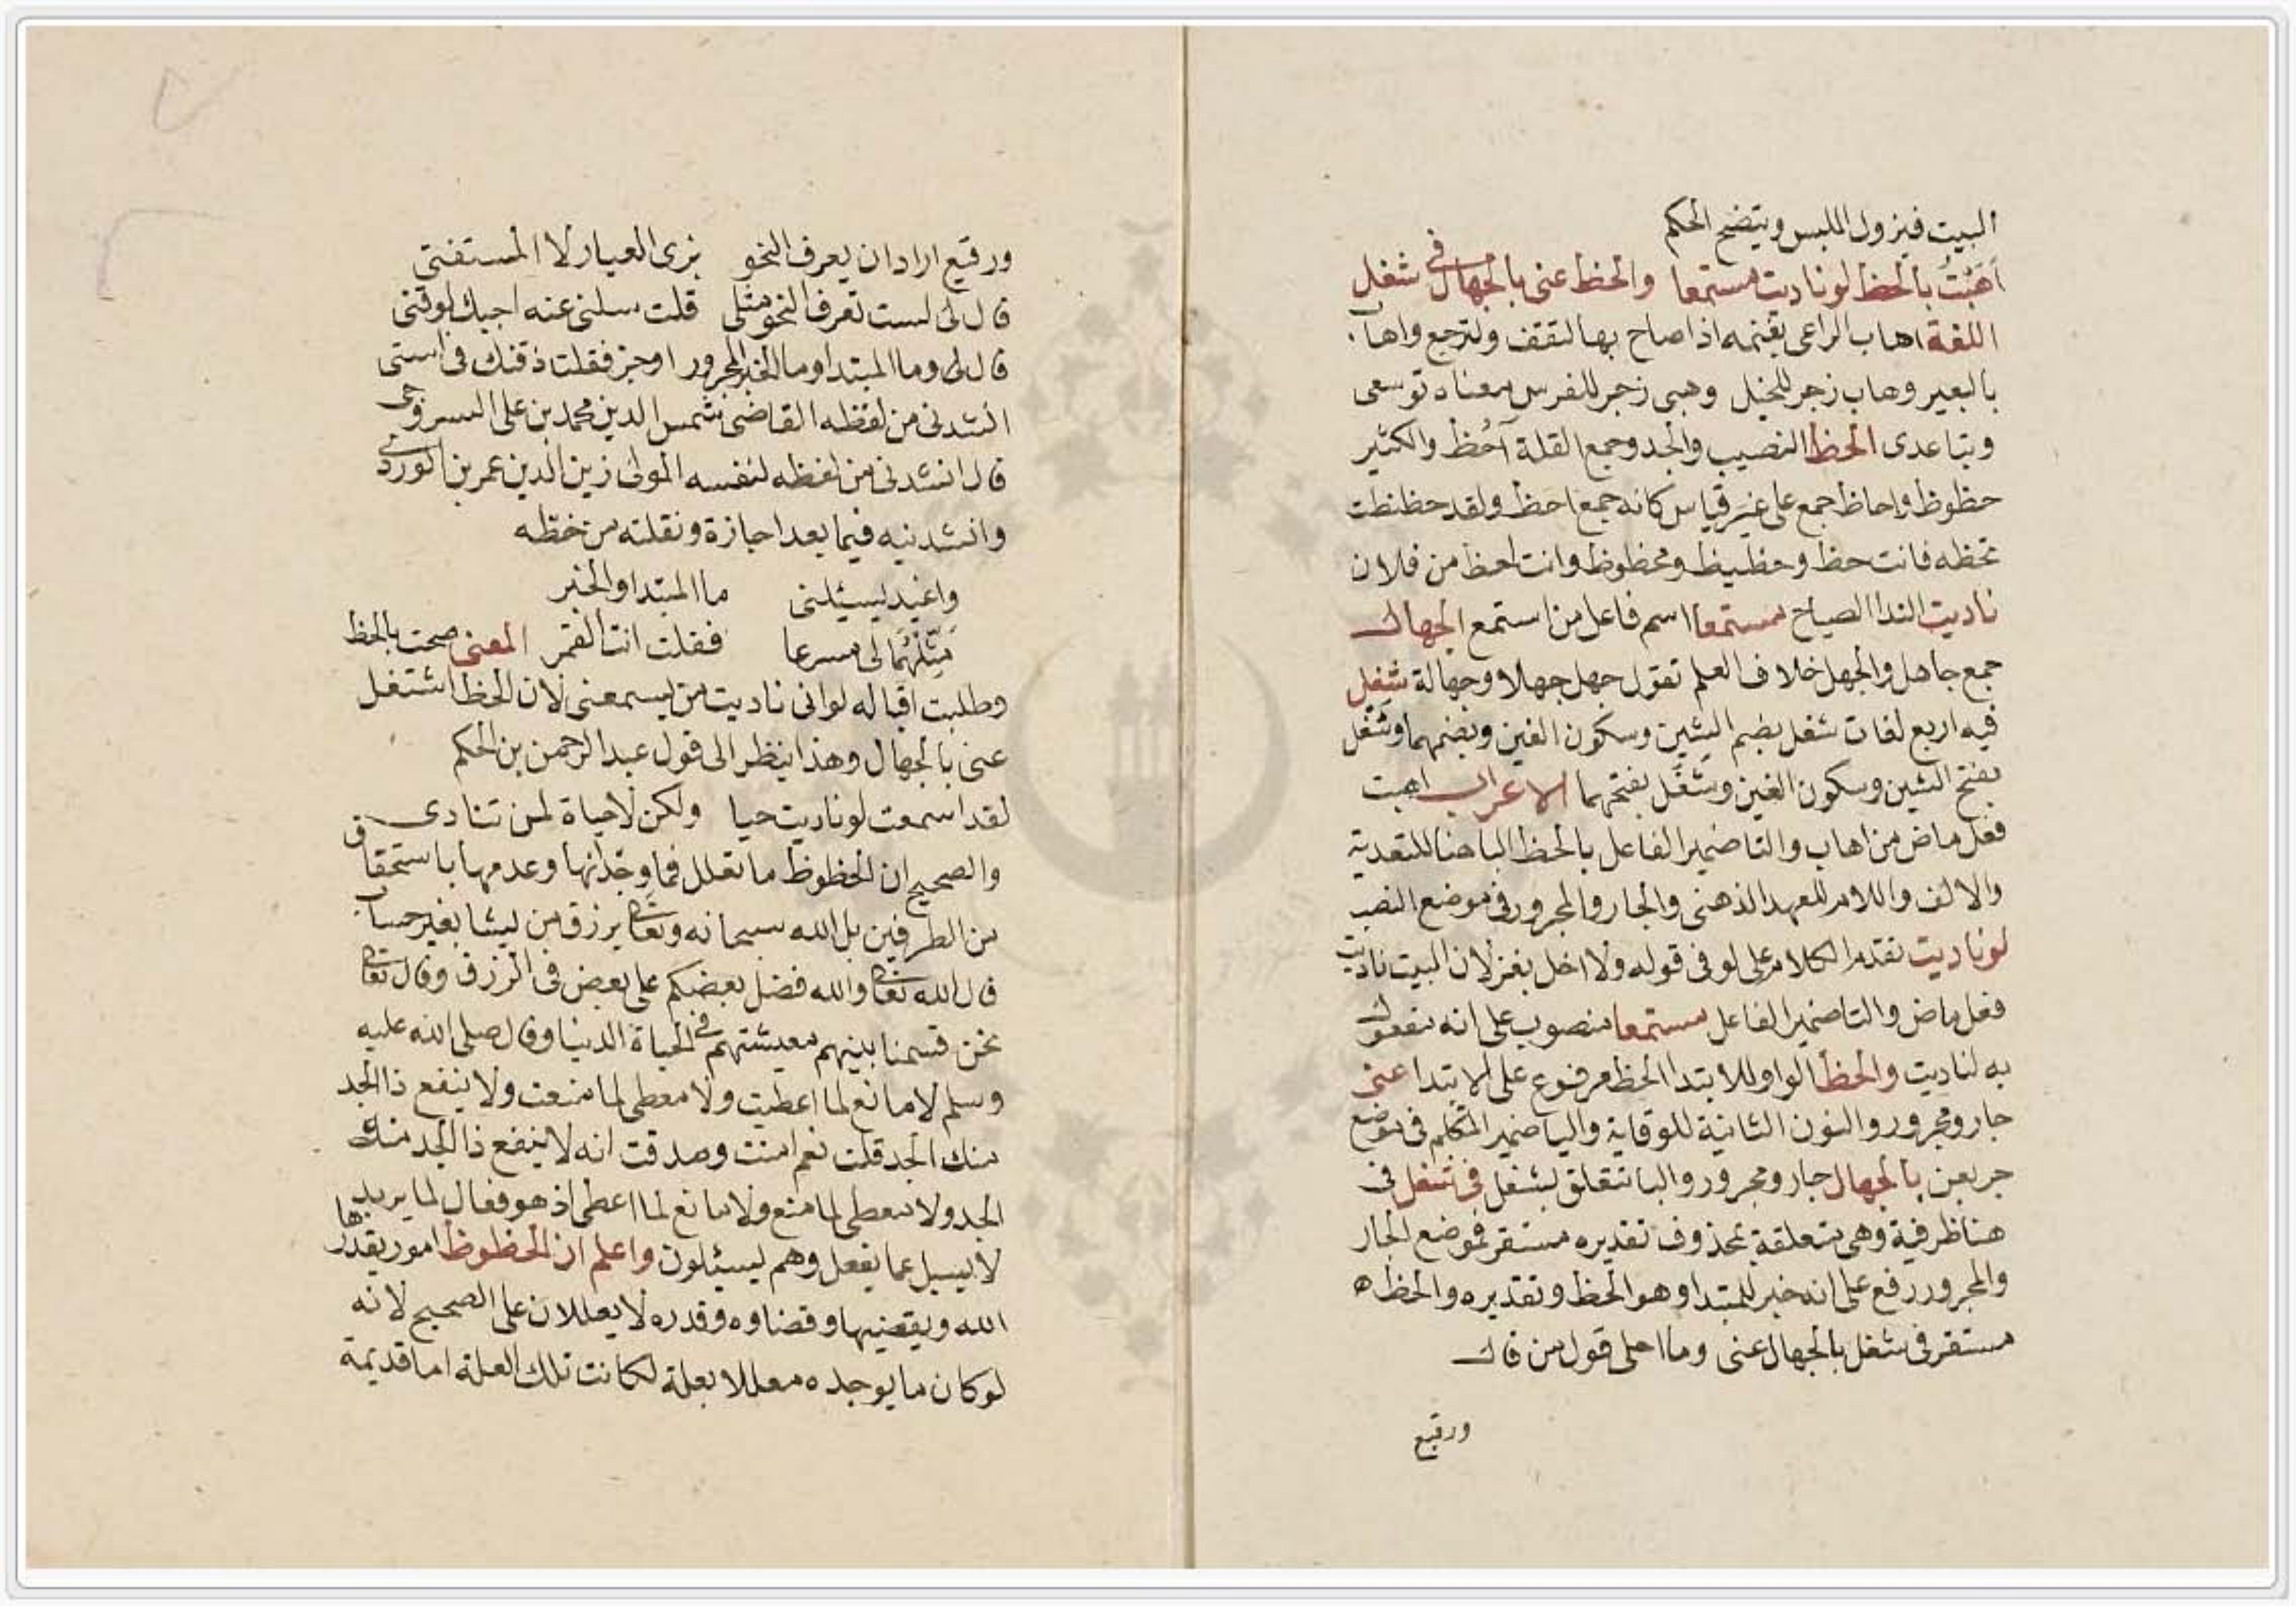 البيت فيزول اللبس ويتضح الحكم
أَهَبْتُ بالحظ لوناديت مستمعا والحظ عنى بالجهال فى شغل
اللغة اهاب الراعى بغنمه اذا صاح بها لتقف ولترجع واهاب
بالبعير وهاب زجر للخيل وهبى زجر للفرس معناه توسعى
وتباعدى الحظ النصيب والجد وجمع القلة أحُظ والكثير
حظوظ واحاظ جمع على غير قياس كانه جمع احظ ولقد حظظت
تحظه فانت حظ وحظيظ ومحظوظ وانت احظ من فلان
ناديت الندا الصياح مستمعا اسم فاعل من استمع الجهال
جمع جاهل والجهل خلاف العلم تقول جهل جهلا وجهالة شغل
فيه اربع لغات شغل بضم الشين وسكون الغين وبضمهما وشغل
بفتح الشين وسكون الغين وشغل بفتحهما الاعراب اهبت
فعل ماض من اهاب والتا ضمير الفاعل بالحظ البا هنا للتعدية
والالف واللام للعهد الذهنى والجار والمجرور فى موضع النصب
لوناديت تقدم الكلام على لو فى قوله ولا اخل بغزلان البيت ناديت
فعل ماض والتا ضمير الفاعل مستمعا منصوب على انه مفعول
به لناديت والحظ الواو للابتدا الحظ مرفوع على الابتدا عنى
جار ومجرور والنون الثانية للوقاية واليا ضمير المتكلم فى موضع
جر بعن بالجهال جار ومجرور والبا تتعلق بشغل فى شغل فى
هنا ظرفية وهى متعلقة بمحذوف تقديره مستقر فموضع الجار
والمجرور رفع على انه خبر للمبتدا وهو الحظ وتقديره والحظ ه
مستقر فى شغل بالجهال عنى وما احلى قول من قال
ورقيع
ورقيع اراد ان يعرف النحو بزى العيار لا المستفتى
قال لى لست تعرف النحو مثلى قلت سلنى عنه اجبك لوقتى
قال لى وما المبتدا وما الخبر المجرور اوجز فقلت ذقنك فى استى
انشدنى من لفظه القاضى شمس الدين محمد بن على السروجى
قال انشدنى من لفظه لنفسه المولى زين الدين عمر بن الوردى
وانشدنيه فيما بعد اجازة ونقلته من خطه
واغيد يسئلنى ما المبتدا والخبر
مَثِّلْهُمَا لى مسرعا فقلت انت القمر المعنى صحت بالحظ
وطلبت اقباله لوانى ناديت من يسمعنى لان الحظ اشتغل
عنى بالجهال وهذا ينظر الى قول عبد الرحمن بن الحكم
لقد اسمعت لوناديت حيا ولكن لاحياة لمن تنادى
والصحيح ان الحظوظ ما تعلل فما وجدانها وعدمها باستحقاق
من الطرفين بل الله سبحانه وتعالى يرزق من يشا بغير حساب
قال الله تعالى والله فضل بعضكم على بعض فى الرزق وقال تعالى
نحن قسمنا بينهم معيشتهم فى الحياة الدنيا وقال صلى الله عليه
وسلم لا مانع لما اعطيت ولا معطى لما منعت ولا ينفع ذا الجد
منك الجد قلت نعم امنت وصدقت انه لا ينفع ذا الجد منك
الجد ولا معطى لما منع ولا مانع لما اعطى اذ هو فعال لما يريد
لا يسيل عما يفعل وهم يسئلون واعلم ان الحظوظ امور يقدرها
الله ويقضيها وقضاوه وقدره لا يعللان على الصحيح لانه
لوكان ما يوجده معللا بعلة لكانت تلك العلة اما قديمة